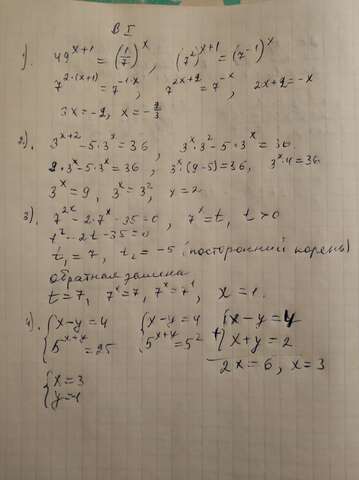 В I
1). 49^(x+1) = (1/7)^x, (7²)^(x+1) = (7^(-1))^x
7^(2·(x+1)) = 7^(-1·x), 7^(2x+2) = 7^(-x), 2x+2 = -x
3x = -2, x = -2/3
2). 3^(x+2) - 5·3^x = 36, 3^x·3² - 5·3^x = 36.
9·3^x - 5·3^x = 36, 3^x·(9-5) = 36, 3^x·4 = 36
3^x = 9, 3^x = 3², x = 2
3). 7^(2x) - 2·7^x - 35 = 0, 7^x = t, t > 0
t² - 2t - 35 = 0
t₁ = 7, t₂ = -5 (посторонний корень)
обратная замена
t = 7, 7^x = 7, 7^x = 7¹, x = 1.
4). {x-y = 4 {x-y = 4 {x-y = 4
{5^(x+y) = 25 {5^(x+y) = 5² + {x+y = 2
2x = 6, x = 3
{x = 3
{y = -1